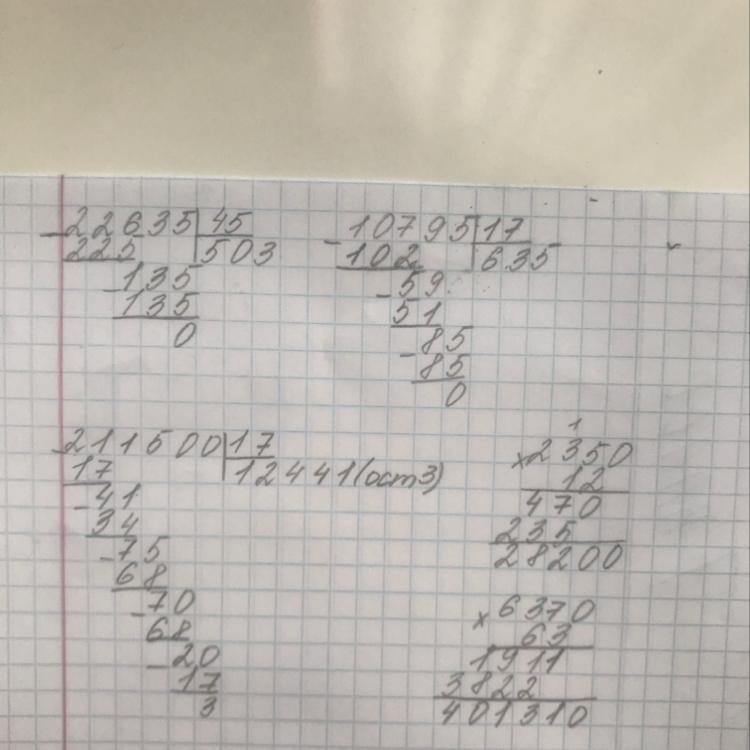 22635 45
225 503
135
135
0
10795 17
102 635
59
51
85
85
0
211500 17
17 12441 (ост 3)
41
34
75
68
70
68
20
17
3
1
× 2350
12
470
235
28200
× 6370
63
1911
3822
401310